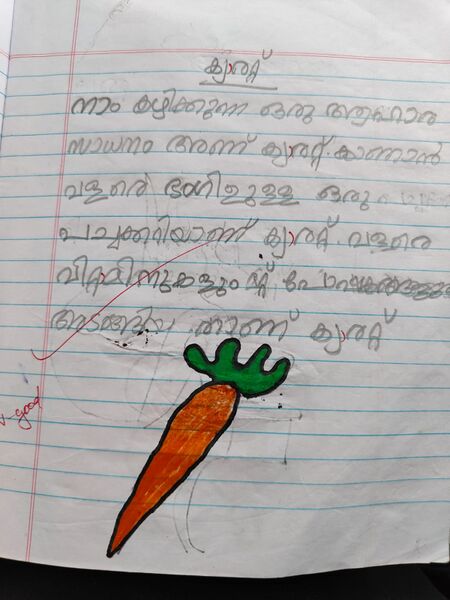 ക്യാരറ്റ്
നാം കഴിക്കുന്ന ഒരു ആഹാര
സാധനം ആണ് ക്യാരറ്റ്. കാണാൻ
വളരെ ഭംഗിഉള്ള ഒരു
പച്ചക്കറിയാണ് ക്യാരറ്റ്. വളരെ
വിറ്റാമിനുകളും മറ്റ്
അടങ്ങിയ താണ് ക്യാരറ്റ്
v-good